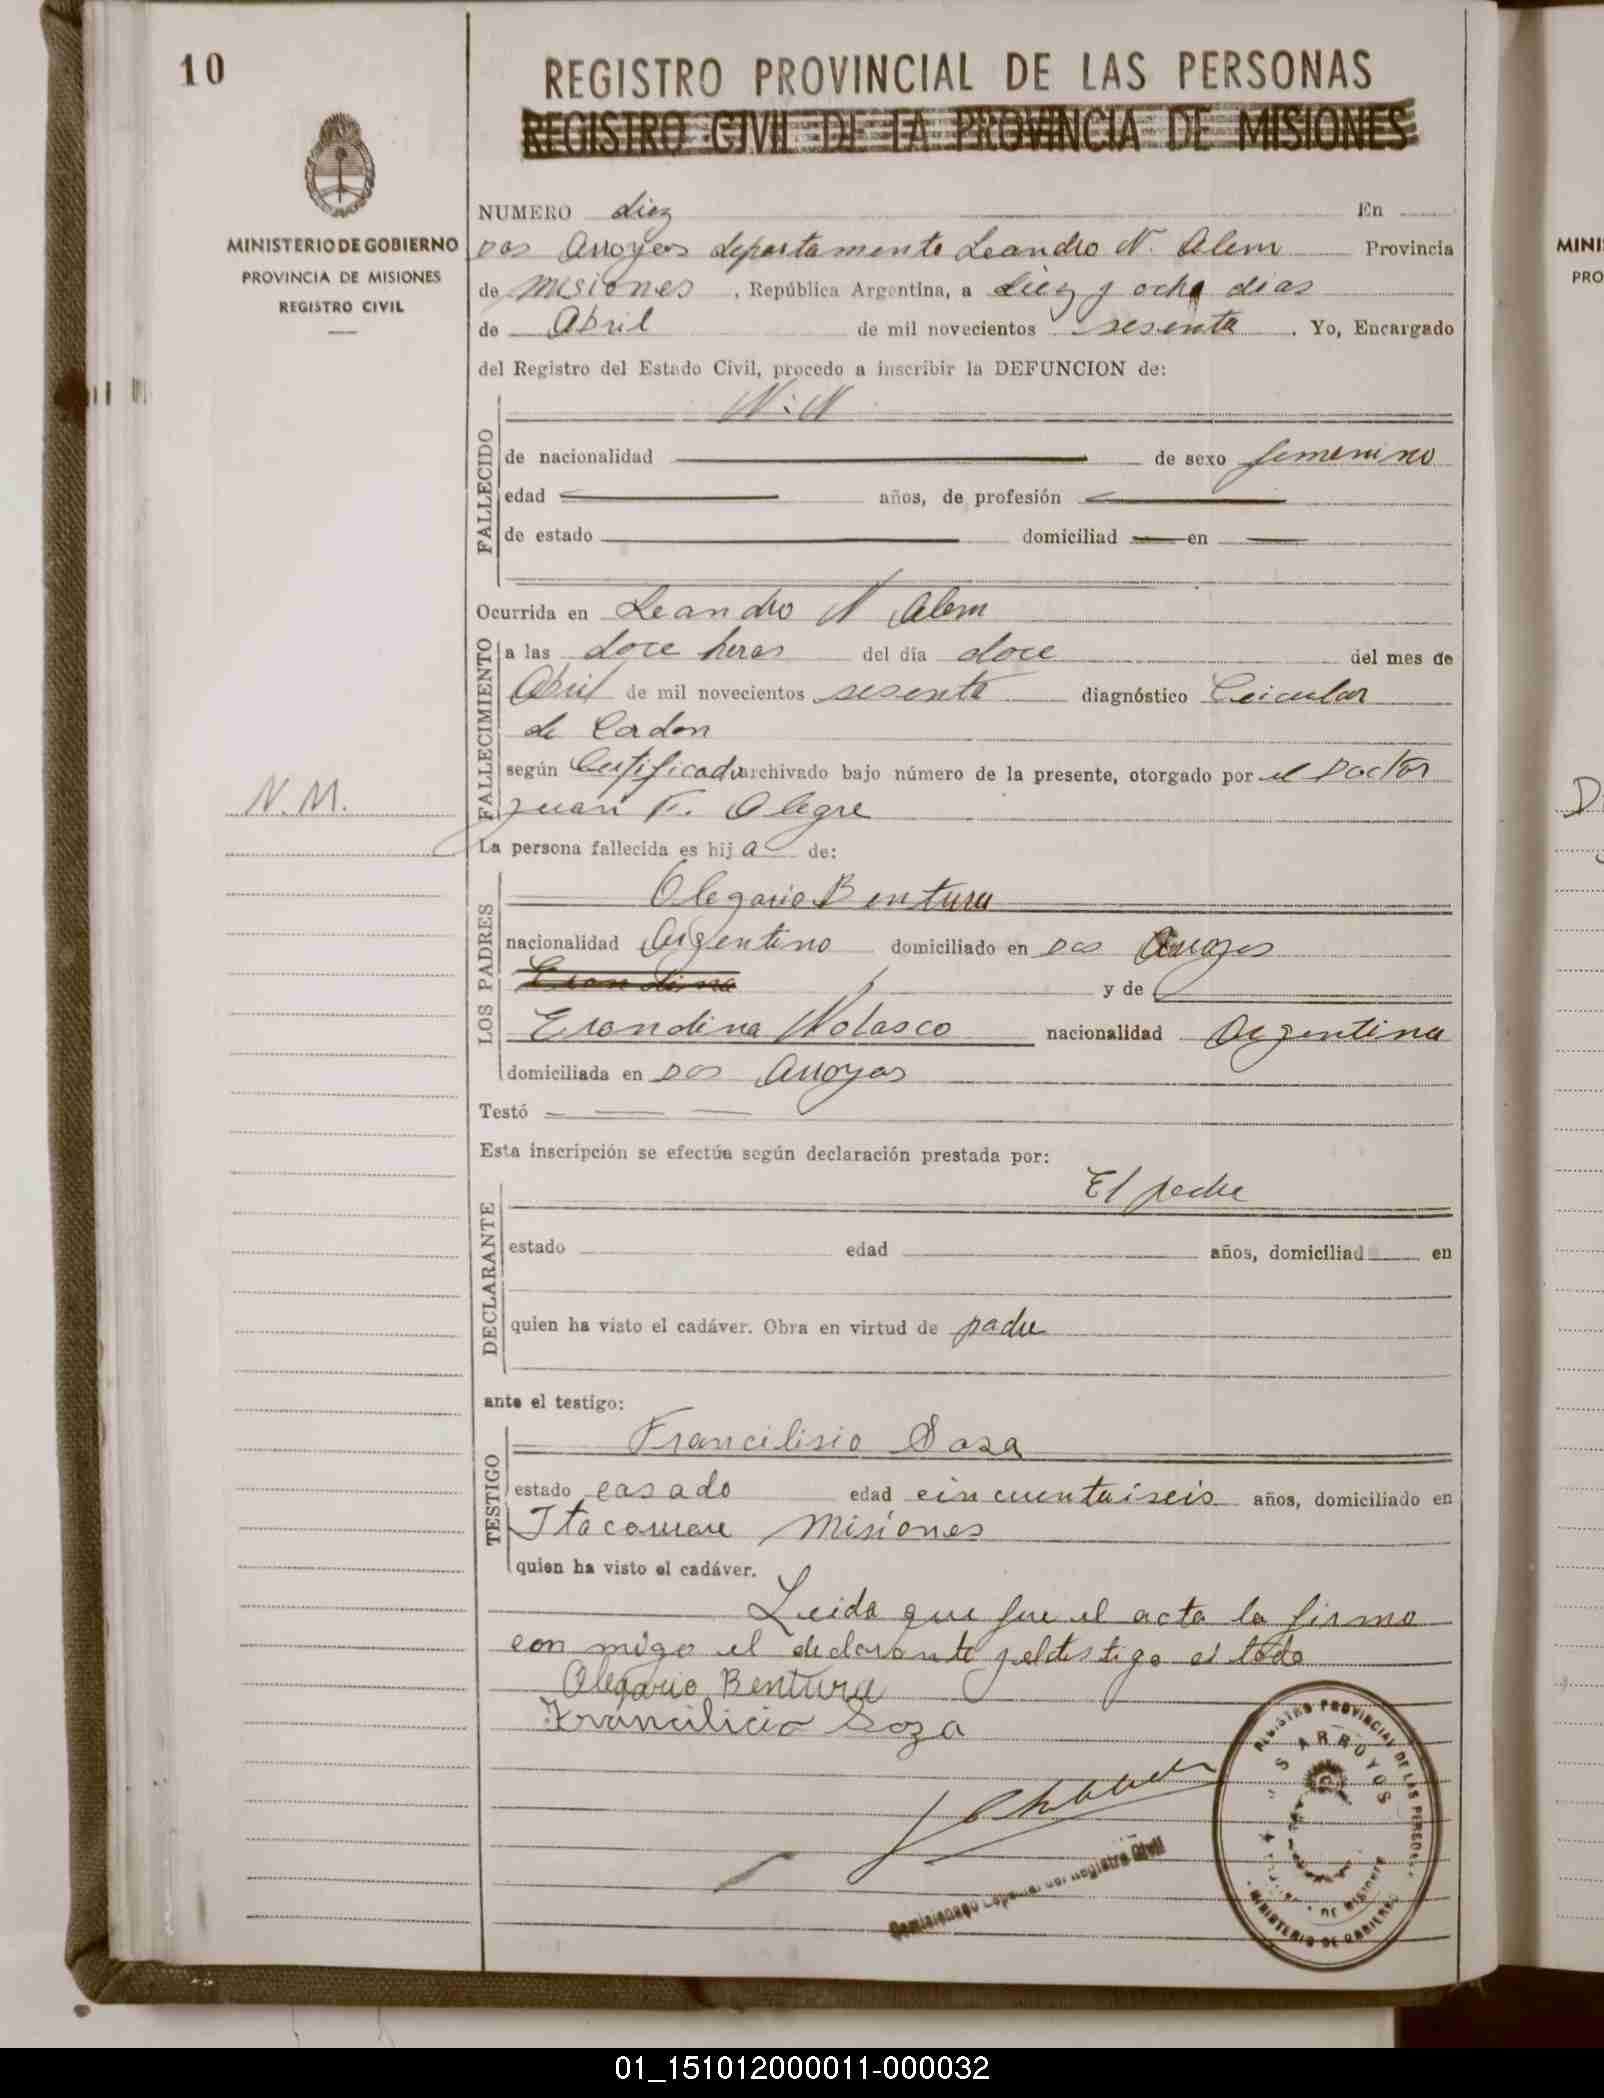 10
REGISTRO PROVINCIAL DE LAS PERSONAS
REGISTRO CIVIL DE LA PROVINCIA DE MISIONES
MINISTERIO DE GOBIERNO
PROVINCIA DE MISIONES
REGISTRO CIVIL
NUMERO diez En
Dos Arroyos departamento Leandro N. Alem Provincia
de Misiones, República Argentina, a diez y ocho dias
de Abril de mil novecientos sesenta. Yo, Encargado
del Registro del Estado Civil, procedo a inscribir la DEFUNCION de:
N.N
FALLECIDO
de nacionalidad de sexo femenino
edad años, de profesión
de estado domiciliad en
Ocurrida en Leandro N Alem
FALLECIMIENTO
a las doce horas del día doce del mes de
Abril de mil novecientos sesenta diagnóstico Circular
de Cordon
según Certificado archivado bajo número de la presente, otorgado por el Doctor
Juan F. Alegre
N.N.
La persona fallecida es hija de:
LOS PADRES
Olegario Bentura
nacionalidad Argentino domiciliado en Dos Arroyos
Erondina y de
Erondina Nolasco nacionalidad Argentina
domiciliada en Dos Arroyos
Testó
Esta inscripción se efectúa según declaración prestada por:
El padre
DECLARANTE
estado edad años, domiciliad en
quien ha visto el cadáver. Obra en virtud de padre
ante el testigo:
TESTIGO
Francilisio Sosa
estado casado edad cincuentaiseis años, domiciliado en
Itacaruare Misiones
quien ha visto el cadáver.
Leida que fue el acta la firma
con migo el declarante y el testigo
Olegario Bentura
Francilicio Soza
Comisionado Especial del Registro Civil
REGISTRO PROVINCIAL DE LAS PERSONAS
DOS ARROYOS
DE MISIONES
MINISTERIO DE GOBIERNO
MINI
PRO
D
01_151012000011-000032